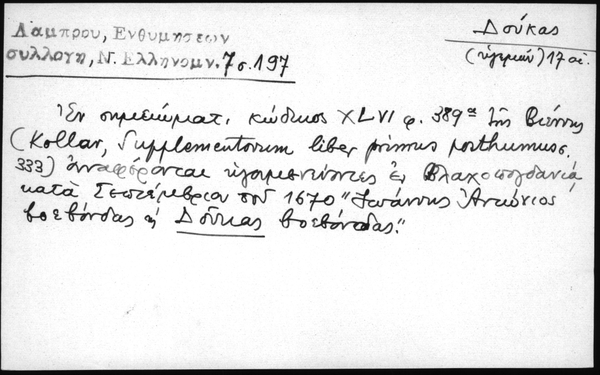 Λάμπρου, Ενθυμήσεων
συλλογή, Ν. Ελληνομν. 7 σ. 197
Δούκας
(ηγεμών) 17 αι.
Ἐν σημειώματι κώδικος XLVI φ. 389α τῆς Βιέννης
(Kollar, Supplementorum liber primus posthumus σ.
333) ἀναφέρονται ηγεμονεύοντες ἐν Βλαχομπογδανίᾳ
κατὰ Σεπτέμβριον τοῦ 1670 "Ἰωάννης Ἀντώνιος
βοεβόνδας ἡ Δούκας βοεβόνδας."